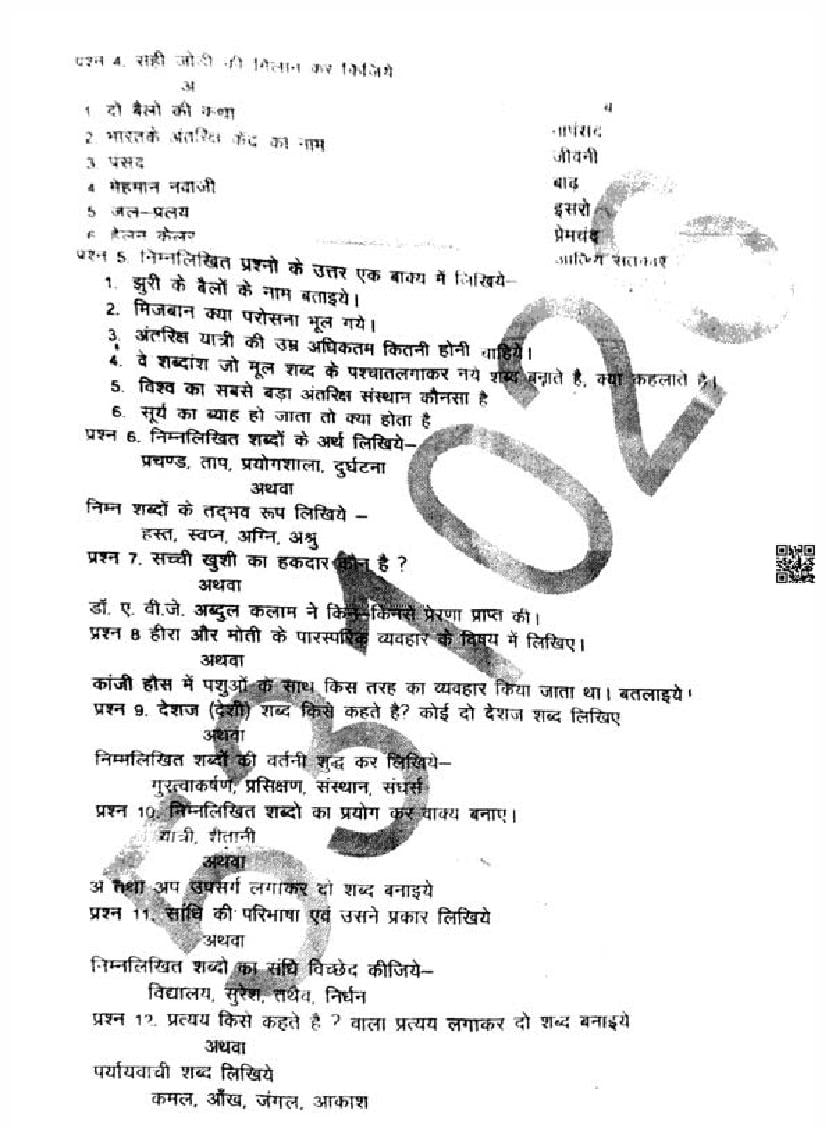 प्रश्न 4. सही जोडी की मिलान कर किजिये
अ
ब
1 दो बैलो की कथा
नापंसद
2. भारतके अंतरिक्ष केंद का नाम
जीवनी
3. पसद
बाढ़
4 मेहमान नवाजी
इसरो
5 जल–प्रलय
प्रेमचंद
6 हेलन केलर
सतकार
प्रश्न 5. निम्नलिखित प्रश्नो के उत्तर एक बाक्य में लिखिये–
1. झुरी के बैलों के नाम बताइये।
2. मिजबान क्या परोसना भूल गये।
3. अंतरिक्ष यात्री की उम्र अधिकतम कितनी होनी चाहिये।
4. वे शब्दांश जो मूल शब्द के पश्चातलगाकर नये शब्द बनाते है, क्या कहलाते है।
5. विश्व का सबसे बड़ा अंतरिक्ष संस्थान कौनसा है
6. सूर्य का ब्याह हो जाता तो क्या होता है
प्रश्न 6. निम्नलिखित शब्दों के अर्थ लिखिये–
प्रचण्ड, ताप, प्रयोगशाला, दुर्घटना
अथवा
निम्न शब्दों के तद्भव रूप लिखिये –
हस्त, स्वप्न, अग्नि, अश्रु
प्रश्न 7. सच्ची खुशी का हकदार कौन है ?
अथवा
डॉ. ए. वी.जे. अब्दुल कलाम ने किन–किनसे प्रेरणा प्राप्त की।
प्रश्न 8 हीरा और मोती के पारस्परिक व्यवहार के विषय में लिखिए।
अथवा
कांजी हौस में पशुओं के साथ किस तरह का व्यवहार किया जाता था। बतलाइये।
प्रश्न 9. देशज (देशी) शब्द किसे कहते है? कोई दो देशज शब्द लिखिए
अथवा
निम्नलिखित शब्दों की वर्तनी शुद्ध कर लिखिये–
गुरत्वाकर्षण, प्रसिक्षण, संस्थान, संघर्स
प्रश्न 10. निम्नलिखित शब्दो का प्रयोग कर वाक्य बनाए।
यात्री, शैतानी
अथवा
अ तथा अप उपसर्ग लगाकर दो शब्द बनाइये
प्रश्न 11. सांधि की परिभाषा एवं उसने प्रकार लिखिये
अथवा
निम्नलिखित शब्दो का संधि विच्छेद कीजिये–
विद्यालय, सुरेश, तथैव, निर्धन
प्रश्न 12. प्रत्यय किसे कहते है ? वाला प्रत्यय लगाकर दो शब्द बनाइये
अथवा
पर्यायवाची शब्द लिखिये
कमल, आँख, जंगल, आकाश